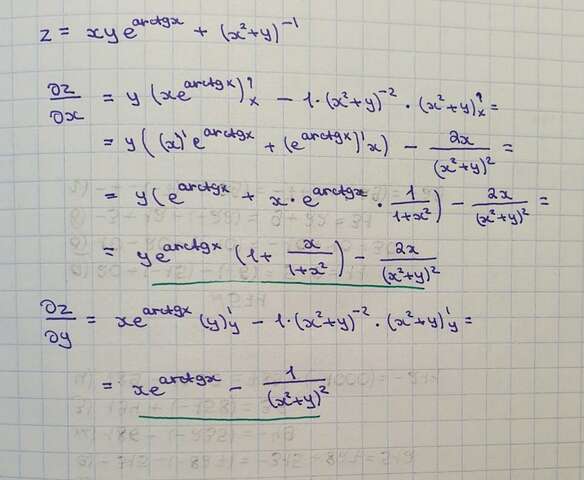 z = xy e^{arctgx} + (x²+y)^{-1}
∂z/∂x = y (xe^{arctgx})'_x − 1·(x²+y)^{-2} · (x²+y)'_x =
= y((x)' e^{arctgx} + (e^{arctgx})' x) − 2x/(x²+y)² =
= y(e^{arctgx} + x · e^{arctgx} · 1/(1+x²)) − 2x/(x²+y)² =
= y e^{arctgx} (1 + x/(1+x²)) − 2x/(x²+y)²
∂z/∂y = xe^{arctgx} (y)'_y − 1·(x²+y)^{-2} · (x²+y)'_y =
= xe^{arctgx} − 1/(x²+y)²